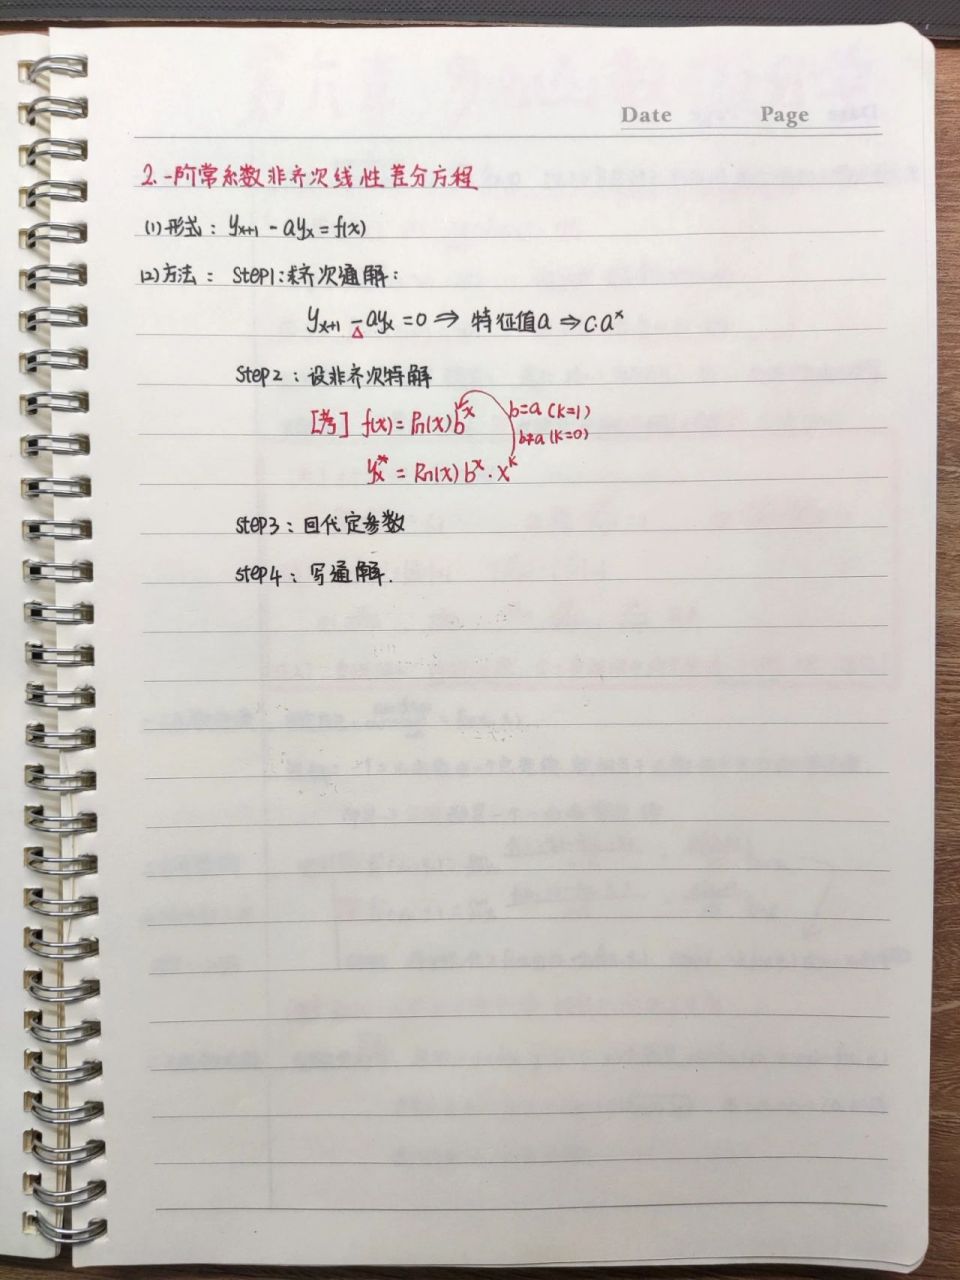 Date Page
2. 一阶常系数非齐次线性差分方程
(1) 形式: yₓ₊₁ - ayₓ = f(x)
(2) 方法: Step1: 求齐次通解:
yₓ₊₁ - ayₓ = 0 ⇒ 特征值a ⇒ C·aˣ
Step2: 设非齐次特解
[考] f(x) = Pₙ(x)bˣ b=a (k=1)
b≠a (k=0)
yₓ* = Rₙ(x) bˣ · xᵏ
Step3: 回代定参数
Step4: 写通解.